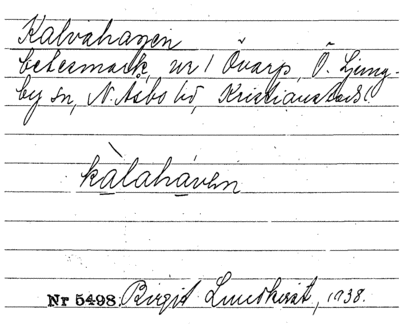 Kalvahagen
betesmark, nr 1 Övarp, Ö. Ljung-
by sn, N. Åsbo hd, Kristianstads l.
kàlaháven
Nr 5498. Birgit Lundkvist, 1938.